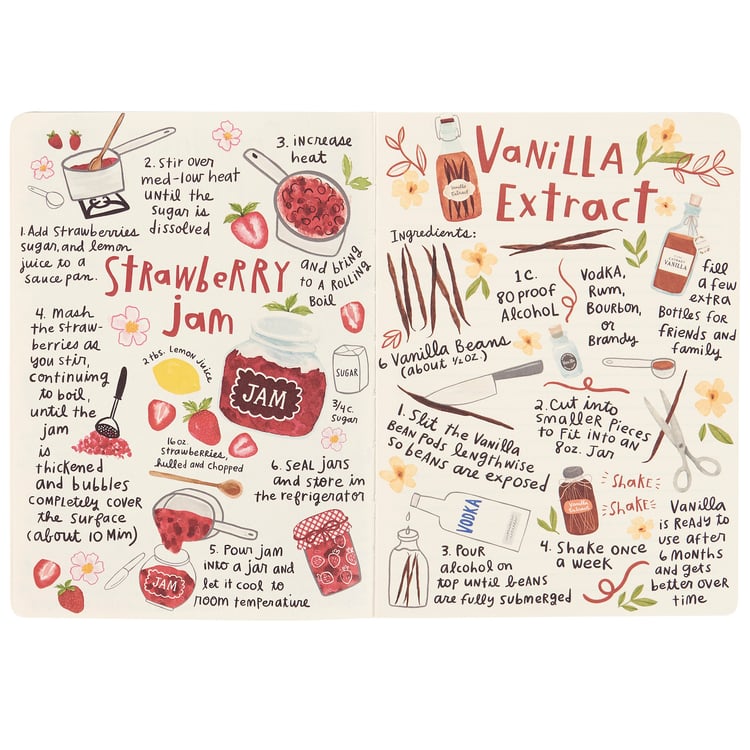 Strawberry
Jam
1. Add Strawberries
sugar, and lemon
juice to a
sauce pan.
2. Stir over
med-low heat
until the
sugar is
dissolved
3. increase
heat
and bring
to a Rolling
Boil
4. Mash
the straw-
berries as
you stir,
continuing
to boil,
until the
jam
is
thickened
and bubbles
completely cover
the surface
(about 10 Min)
2 tbs. Lemon Juice
JAM
SUGAR
3/4 c.
Sugar
16 oz.
Strawberries,
hulled and chopped
5. Pour jam
into a jar and
let it cool to
room temperature
JAM
6. Seal jars
and store in
the refrigerator
Vanilla
Extract
Vanilla
Extract
VANILLA
Ingredients:
6 Vanilla Beans
(about ½ oz.)
1 c.
80 proof
Alcohol
Vodka,
Rum,
Bourbon,
or
Brandy
fill
a few
extra
Bottles for
friends and
family
1. Slit the Vanilla
Bean Pods lengthwise
so beans are exposed
2. Cut into
smaller pieces
to Fit into an
8oz. Jar
VODKA
3. Pour
alcohol on
top until beans
are fully submerged
Vanilla
Extract
Shake
Shake
4. Shake once
a week
Vanilla
is Ready to
use after
6 Months
and gets
better over
time